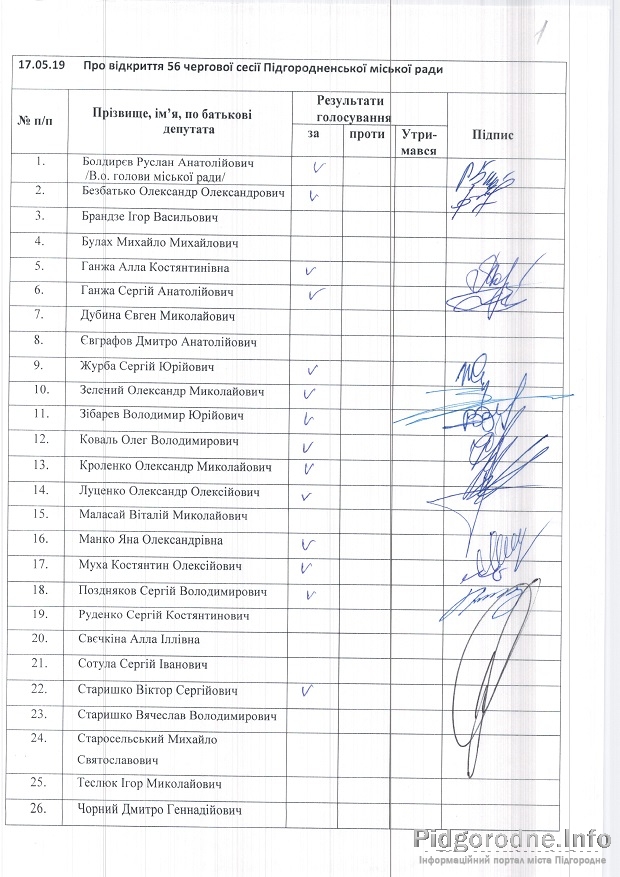 1
17.05.19 Про відкриття 56 чергової сесії Підгородненської міської ради
№ п/п
Прізвище, ім’я, по батькові
депутата
Результати
голосування
за проти Утри-
мався
Підпис
1. Болдирєв Руслан Анатолійович
/В.о. голови міської ради/
2. Безбатько Олександр Олександрович
3. Брандзе Ігор Васильович
4. Булах Михайло Михайлович
5. Ганжа Алла Костянтинівна
6. Ганжа Сергій Анатолійович
7. Дубина Євген Миколайович
8. Євграфов Дмитро Анатолійович
9. Журба Сергій Юрійович
10. Зелений Олександр Миколайович
11. Зібарев Володимир Юрійович
12. Коваль Олег Володимирович
13. Кроленко Олександр Миколайович
14. Луценко Олександр Олексійович
15. Маласай Віталій Миколайович
16. Манко Яна Олександрівна
17. Муха Костянтин Олексійович
18. Поздняков Сергій Володимирович
19. Руденко Сергій Костянтинович
20. Свєчкіна Алла Іллівна
21. Сотула Сергій Іванович
22. Старишко Віктор Сергійович
23. Старишко Вячеслав Володимирович
24. Старосельський Михайло
Святославович
25. Теслюк Ігор Миколайович
26. Чорний Дмитро Геннадійович
Pidgorodne.Info
Інформаційний портал міста Підгородне